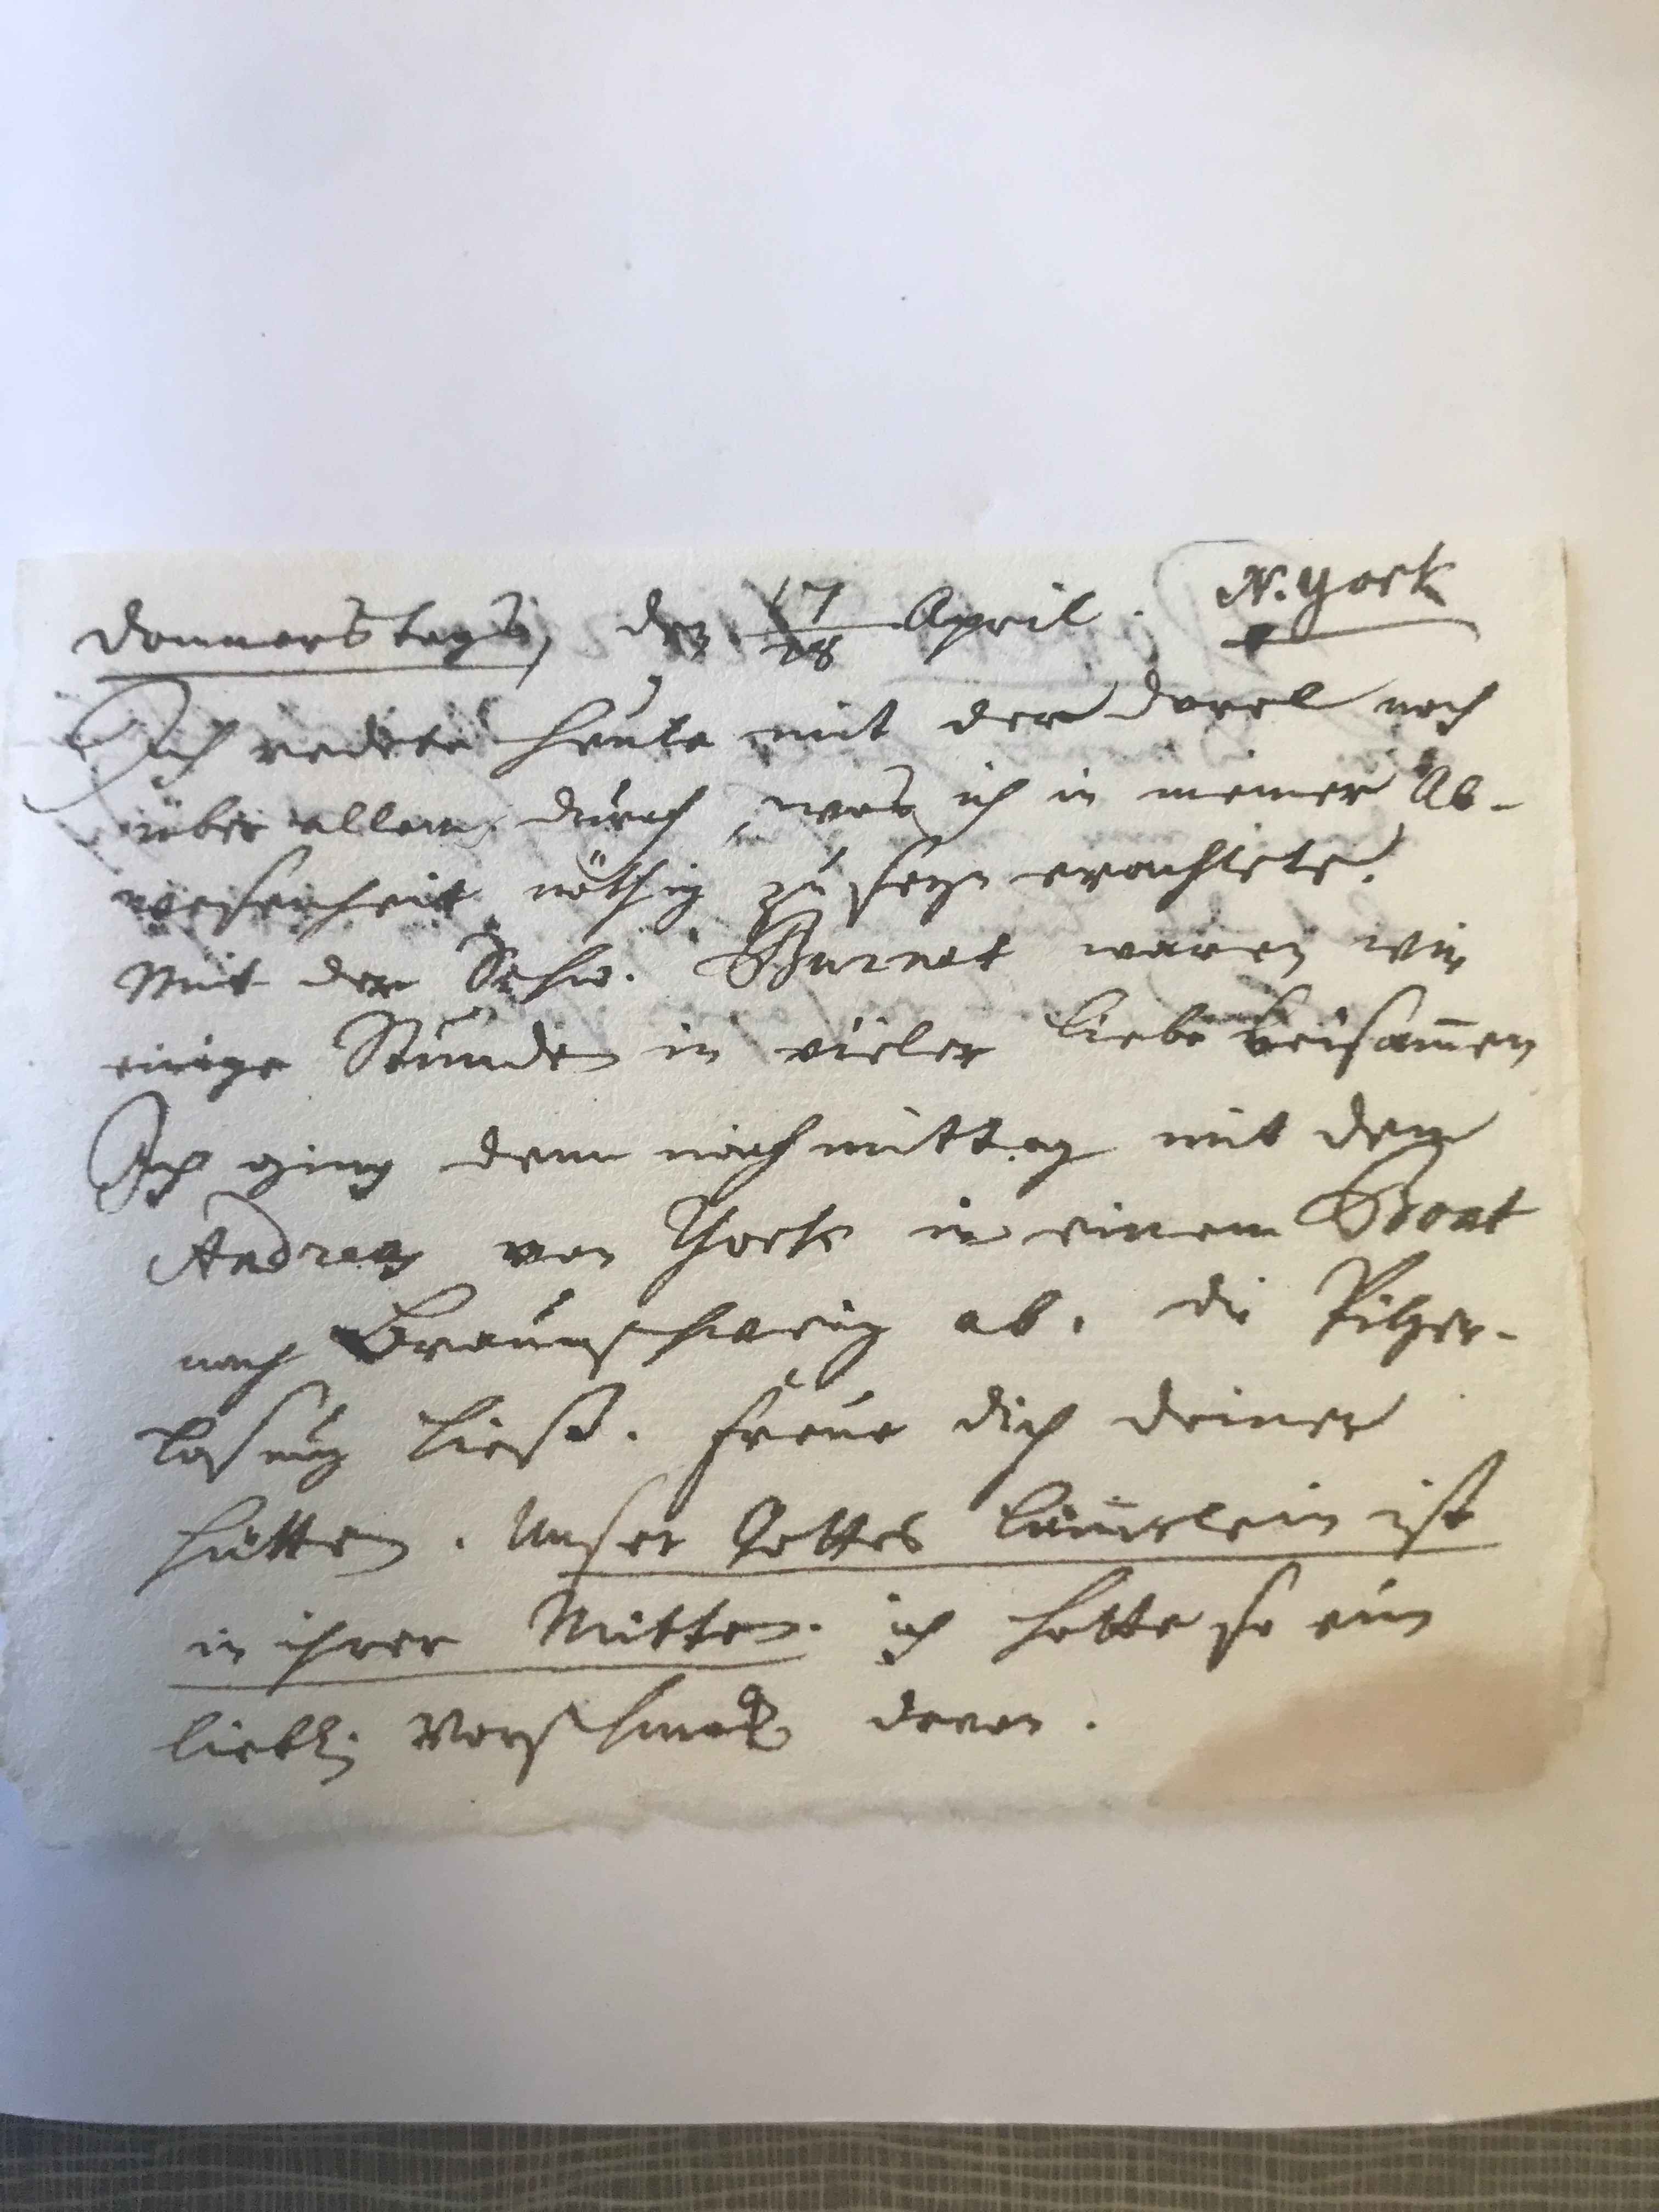 Donnerstags, den 17/28 April. N. York
Ich redete heute mit der Dorel noch
über allem durch, was ich in meiner Ab-
wesenheit nöthig zu seyn erachtete.
Mit der Schw. Burnet waren wir
einige Stunden in vieler Liebe beisam̅en
Ich ging denn nachmittag mit dem
Andreas von York in einem Boat
nach Braunschweig ab. die Pilger-
losung hieß. Freue dich deiner
hütten. Unser Gottes Lämmlein ist
in ihrer Mitten. ich hatte so ein
liebl. Vorschmak davon.